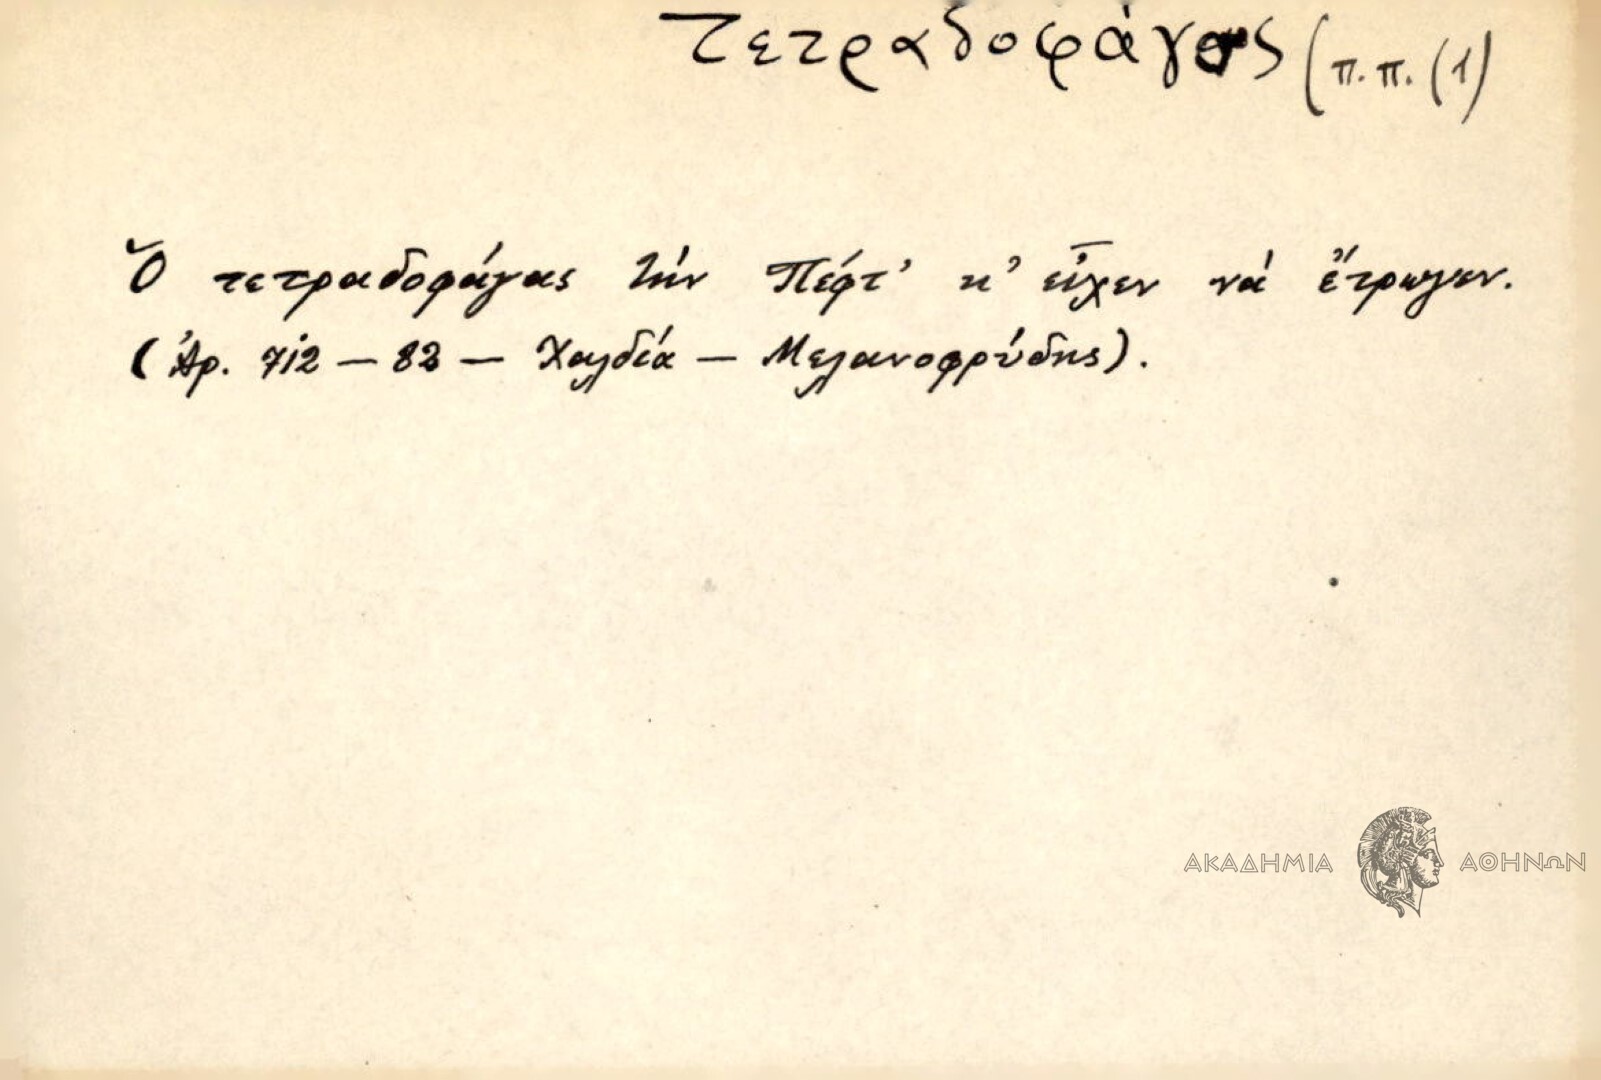 Τετραδοφάγος (π.π. (1)
Ὁ τετραδοφάγας τὴν Πέφτ' κ' εἶχεν νὰ ἔτρωγεν.
(Ἀρ. 712 — 82 — Χαλδία — Μελανοφρύδης).
ΑΚΑΔΗΜΙΑ ΑΘΗΝΩΝ